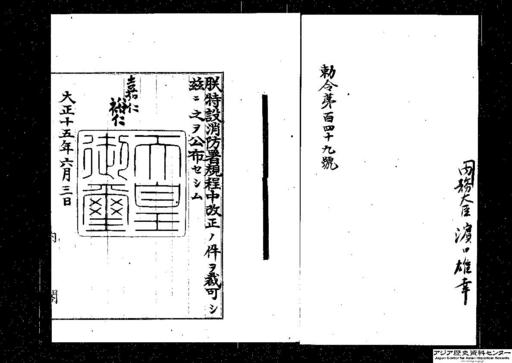 内務大臣 濱口雄幸
勅令第百四十九號
朕特設消防署規程中改正ノ件ヲ裁可シ
茲ニ之ヲ公布セシム
嘉仁
裕仁
天皇
御璽
大正十五年六月三日
内閣
アジア歴史資料センター
Japan Center for Asian Historical Records